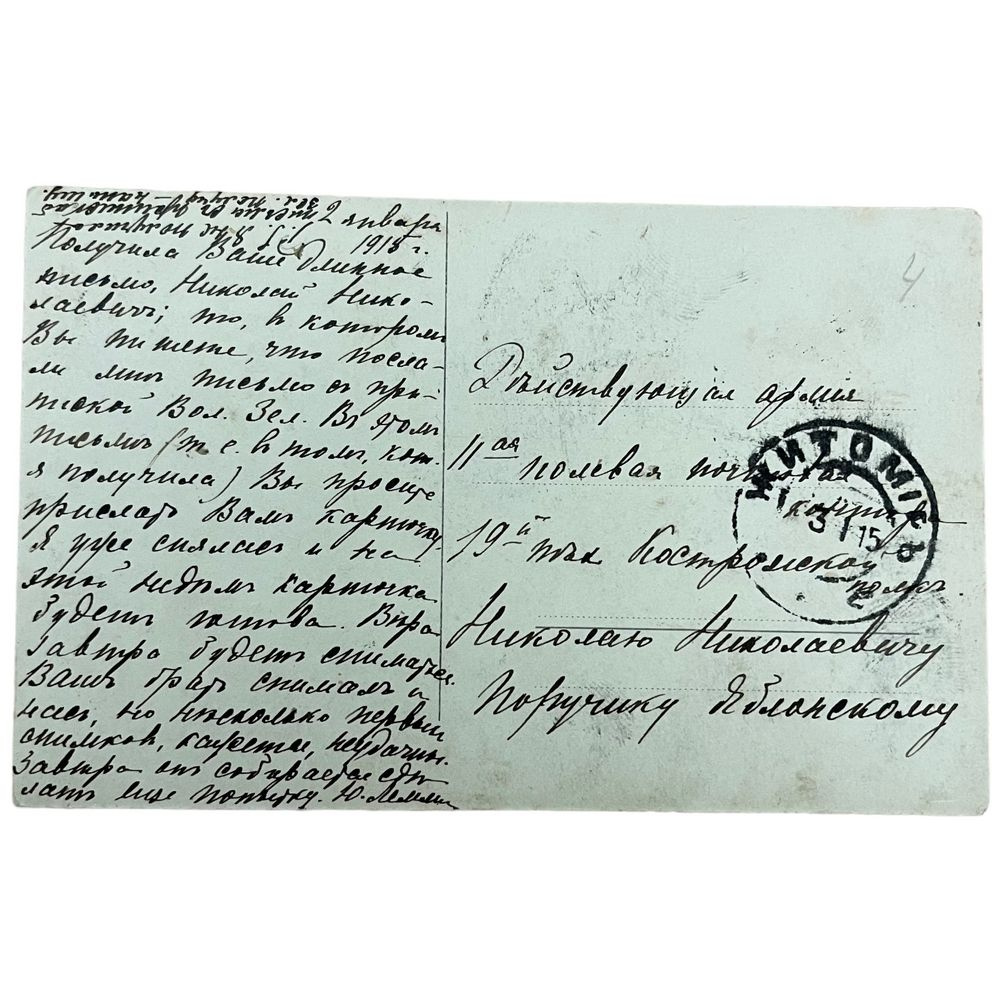 2 января
1915 г.
Получила Ваше длинное
письмо, Николай Нико-
лаевичъ; то, въ которомъ
Вы пишете, что посла-
ли мнѣ письмо съ при-
пиской Вол. Зел. Въ этомъ
письмѣ (т. е. въ томъ, кот.
я получила) Вы просите
прислать Вамъ карточку.
Я уже снялась и на
этой недѣлѣ карточка
будетъ готова. Вѣра
завтра будетъ сниматься.
Вашъ братъ снималъ и
насъ, но нѣсколько первыхъ
снимковъ, кажется, неудачны.
Завтра онъ собирается сдѣ-
лать еще попытку. Ю.
4
Дѣйствующая армія
11ая полевая почтовая
контора
19й пѣх Костромской
полкъ
Николаю Николаевичу
Поручику Яблонскому
ЖИТОМІРЪ
3 1 15